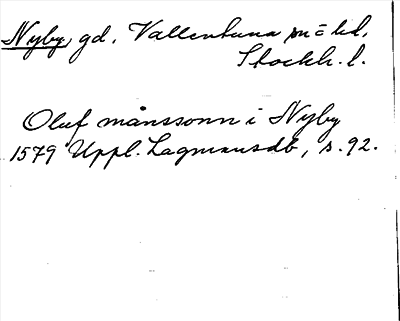 Nyby, gd, Vallentuna sn = hd,
Stockh. l.
Oluf månssonn i Nyby
1579 Uppl. Lagmansdb, s. 92.